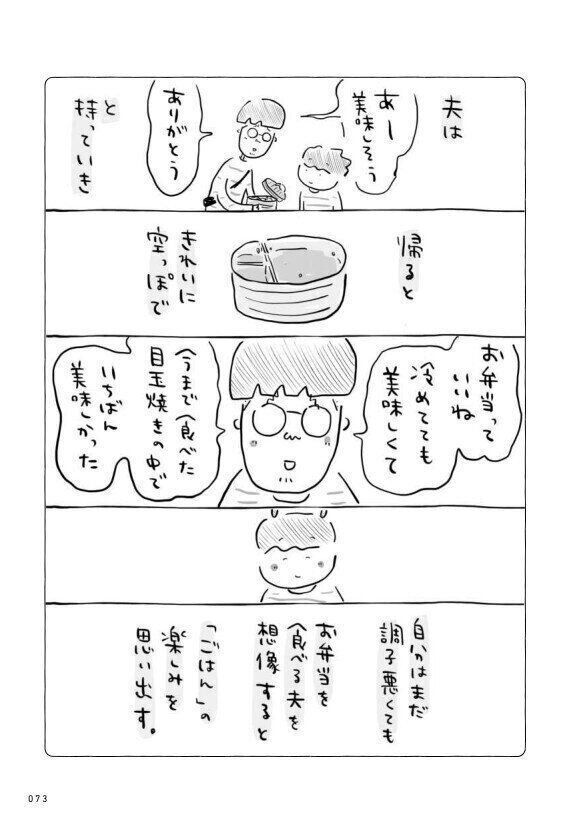 夫は
あー
美味しそう
ありがとう
と
持っていき
帰ると
きれいに
空っぽで
お弁当って
いいね
冷めてても
美味しくて
今まで食べた
目玉焼きの中で
いちばん
美味しかった
自分はまだ
調子悪くても
お弁当を
食べる夫を
想像すると
「ごはん」の
楽しみを
思い出す。
073